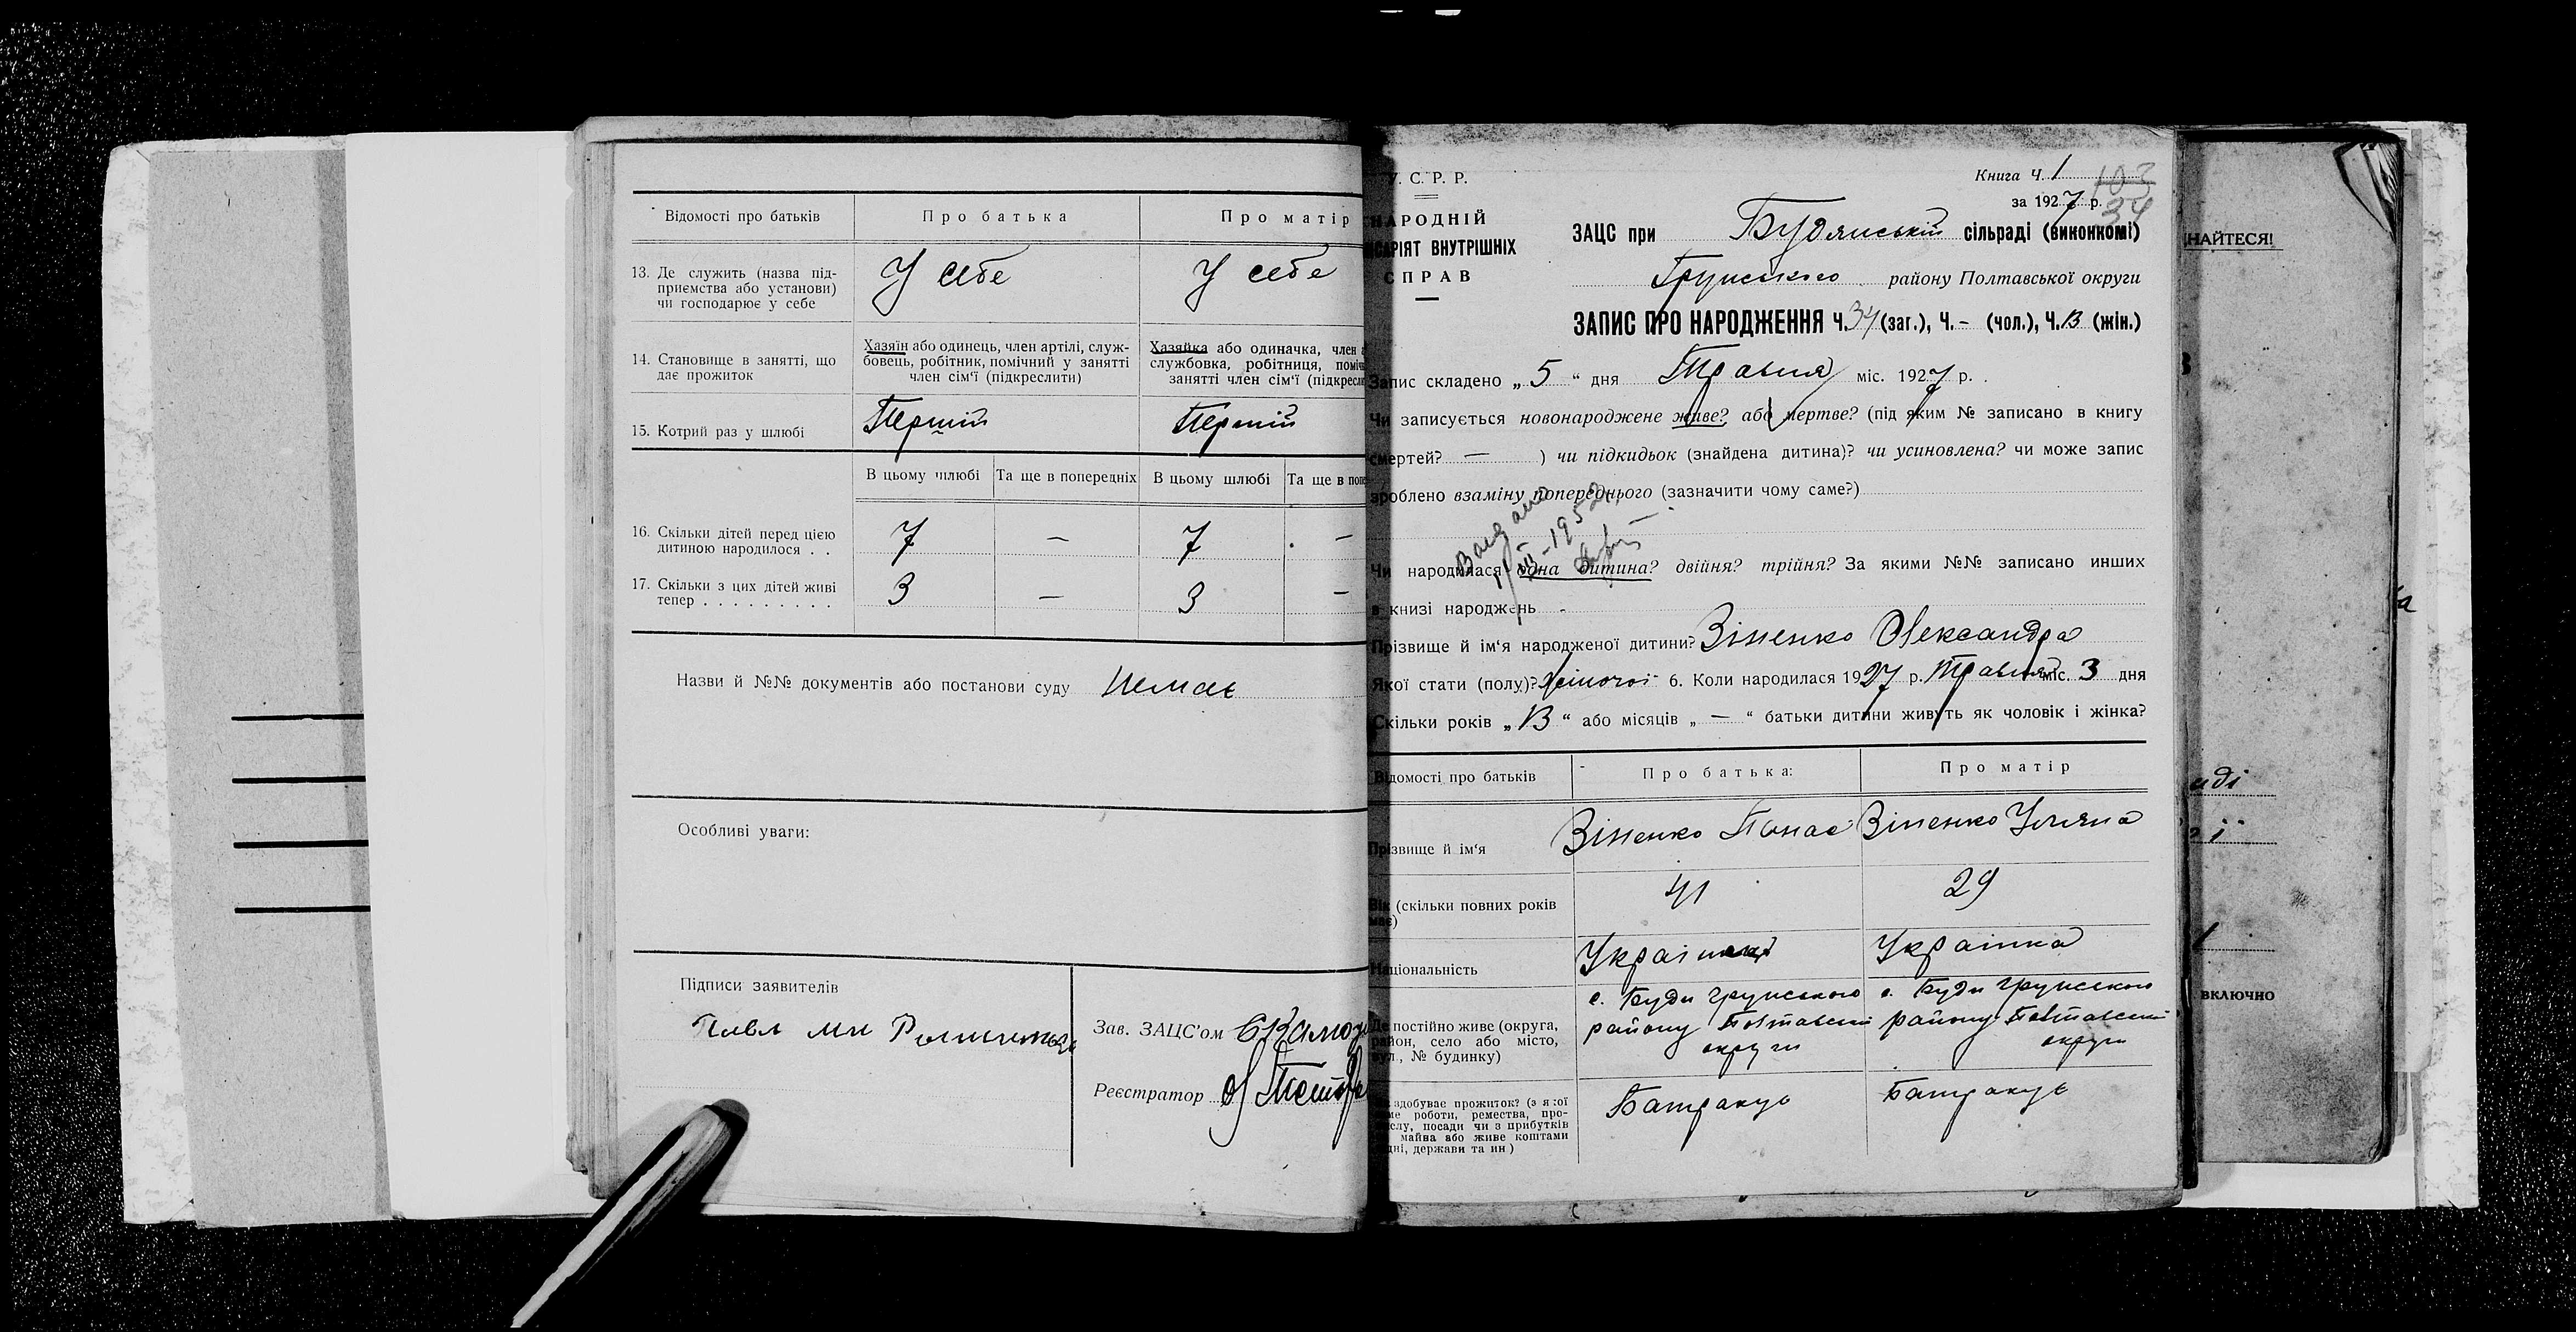 Відомості про батьків
Про батька
Про матір
13. Де служить (назва під-
приємства або установи)
чи господарює у себе
У себе
У себе
14. Становище в занятті, що
дає прожиток
Хазяїн або одинець, член артілі, служ-
бовець, робітник, помічний у занятті
член сім'ї (підкреслити)
Хазяйка або одиначка, член
службовка, робітниця,
занятті член сім'ї
15. Котрий раз у шлюбі
Перший
Перший
В цьому шлюбі
Та ще в попередніх
В цьому шлюбі
Та ще в
16. Скільки дітей перед цією
дитиною народилося . .
7
—
7
—
17. Скільки з цих дітей живі
тепер . . . . . . . . .
3
—
3
—
Назви й №№ документів або постанови суду немає
Особливі уваги:
Підписи заявителів
Зав. ЗАЦС'ом
Реєстратор
У. С. Р. Р.
НАРОДНІЙ
ВНУТРІШНІХ
СПРАВ
Книга Ч. 1
103
за 1927 р.
34
ЗАЦС при Будянській сільраді (виконкомі)
Грунського району Полтавської округи
ЗАПИС ПРО НАРОДЖЕННЯ Ч. 34 (заг.), Ч. - (чол.), Ч. 13 (жін.)
Запис складено „ 5 “ дня Травня міс. 1927 р.
Чи записується новонароджене живе? або мертве? (під яким № записано в книгу
смертей? — ) чи підкидьок (знайдена дитина)? чи усиновлена? чи може запис
зроблено взаміну попереднього (зазначити чому саме?)
1952
Чи народилася одна дитина? двійня? трійня? За якими №№ записано инших
в книзі народжень -
Прізвище й ім'я народженої дитини? Зіненко Олександра
Якої стати (полу)? жіночої 6. Коли народилася 1927 р. Травня міс. 3 дня
Скільки років „ 13 “ або місяців „ — “ батьки дитини живуть як чоловік і жінка?
Відомості про батьків
Про батька:
Про матір
Прізвище й ім'я
Зіненко Панас
Зіненко Уляна
Вік (скільки повних років
має)
41
29
Національність
Українець
Українка
Де постійно живе (округа,
район, село або місто,
вул., № будинку)
с. Буди Грунського
району Полтавської
округи
с. Буди Грунського
району Полтавської
округи
здобуває прожиток? (з якої
роботи, ремества, про-
посади чи з прибутків
майва або живе коштами
держави та ин)
Батракує
Батракує
НАЙТЕСЯ!
включно